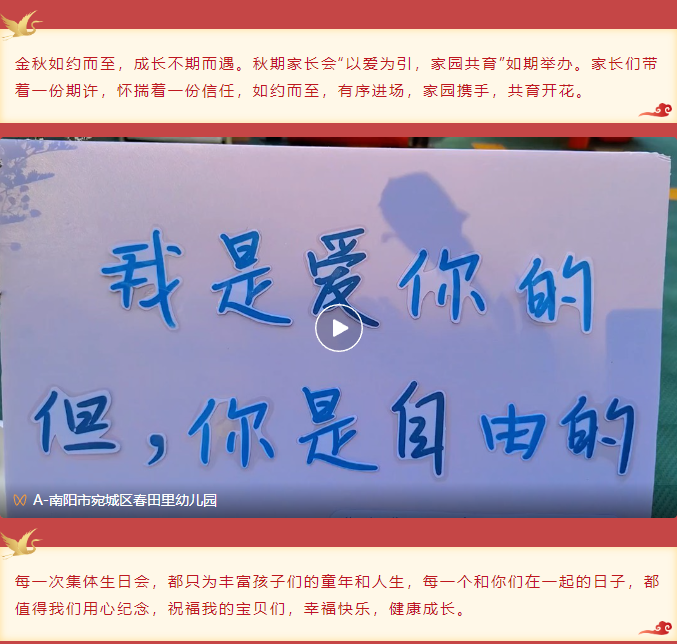 金秋如约而至，成长不期而遇。秋期家长会“以爱为引，家园共育”如期举办。家长们带
着一份期许，怀揣着一份信任，如约而至，有序进场，家园携手，共育开花。
我是爱你的
但，你是自由的
A-南阳市宛城区春田里幼儿园
每一次集体生日会，都只为丰富孩子们的童年和人生，每一个和你们在一起的日子，都
值得我们用心纪念，祝福我的宝贝们，幸福快乐，健康成长。